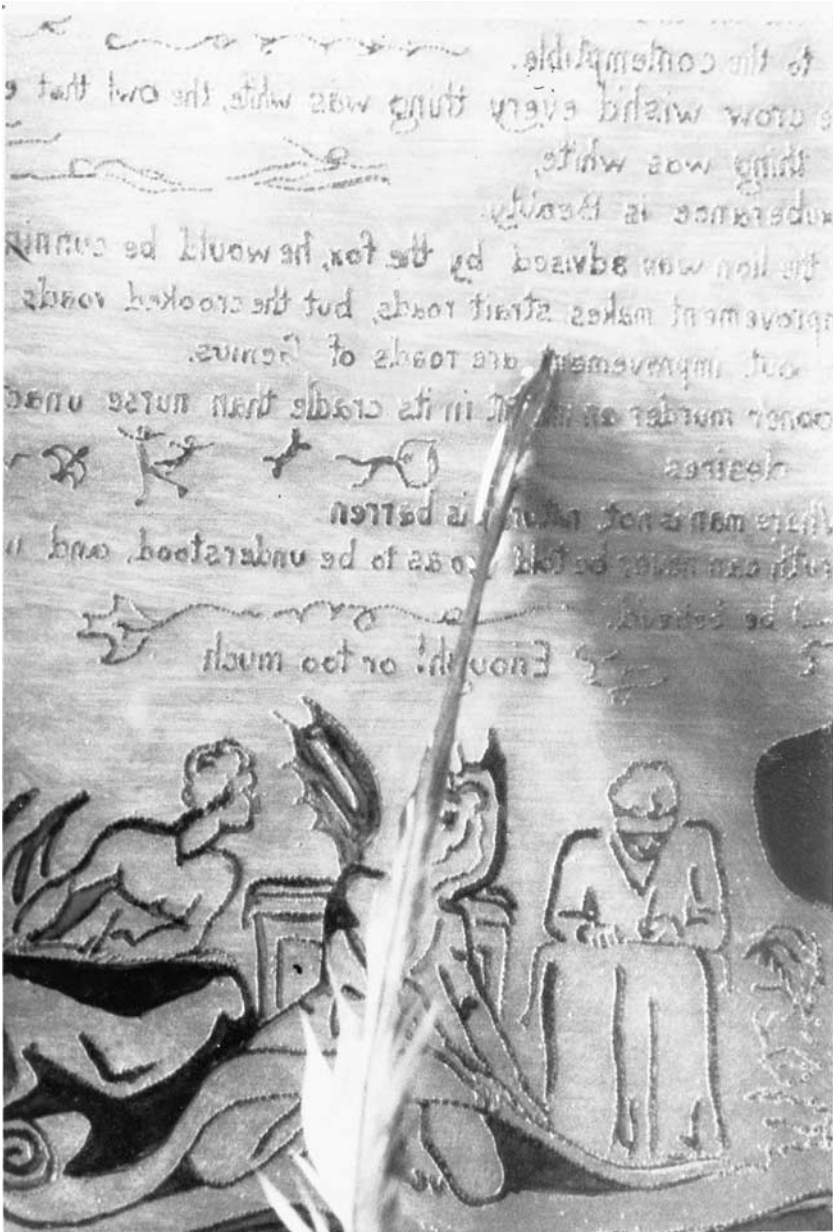 to the contemptible.
e crow wish'd every thing was white, the owl that e
thing was white,
xuberance is Beauty.
the lion was advised by the fox, he would be cunning
mprovement makes strait roads, but the crooked roads
out improvement are roads of Genius.
ooner murder an in its cradle than nurse unac
desires
Where man is not nature is barren
ruth can never be told so as to be understood, and
be believd.
Enough! or too much